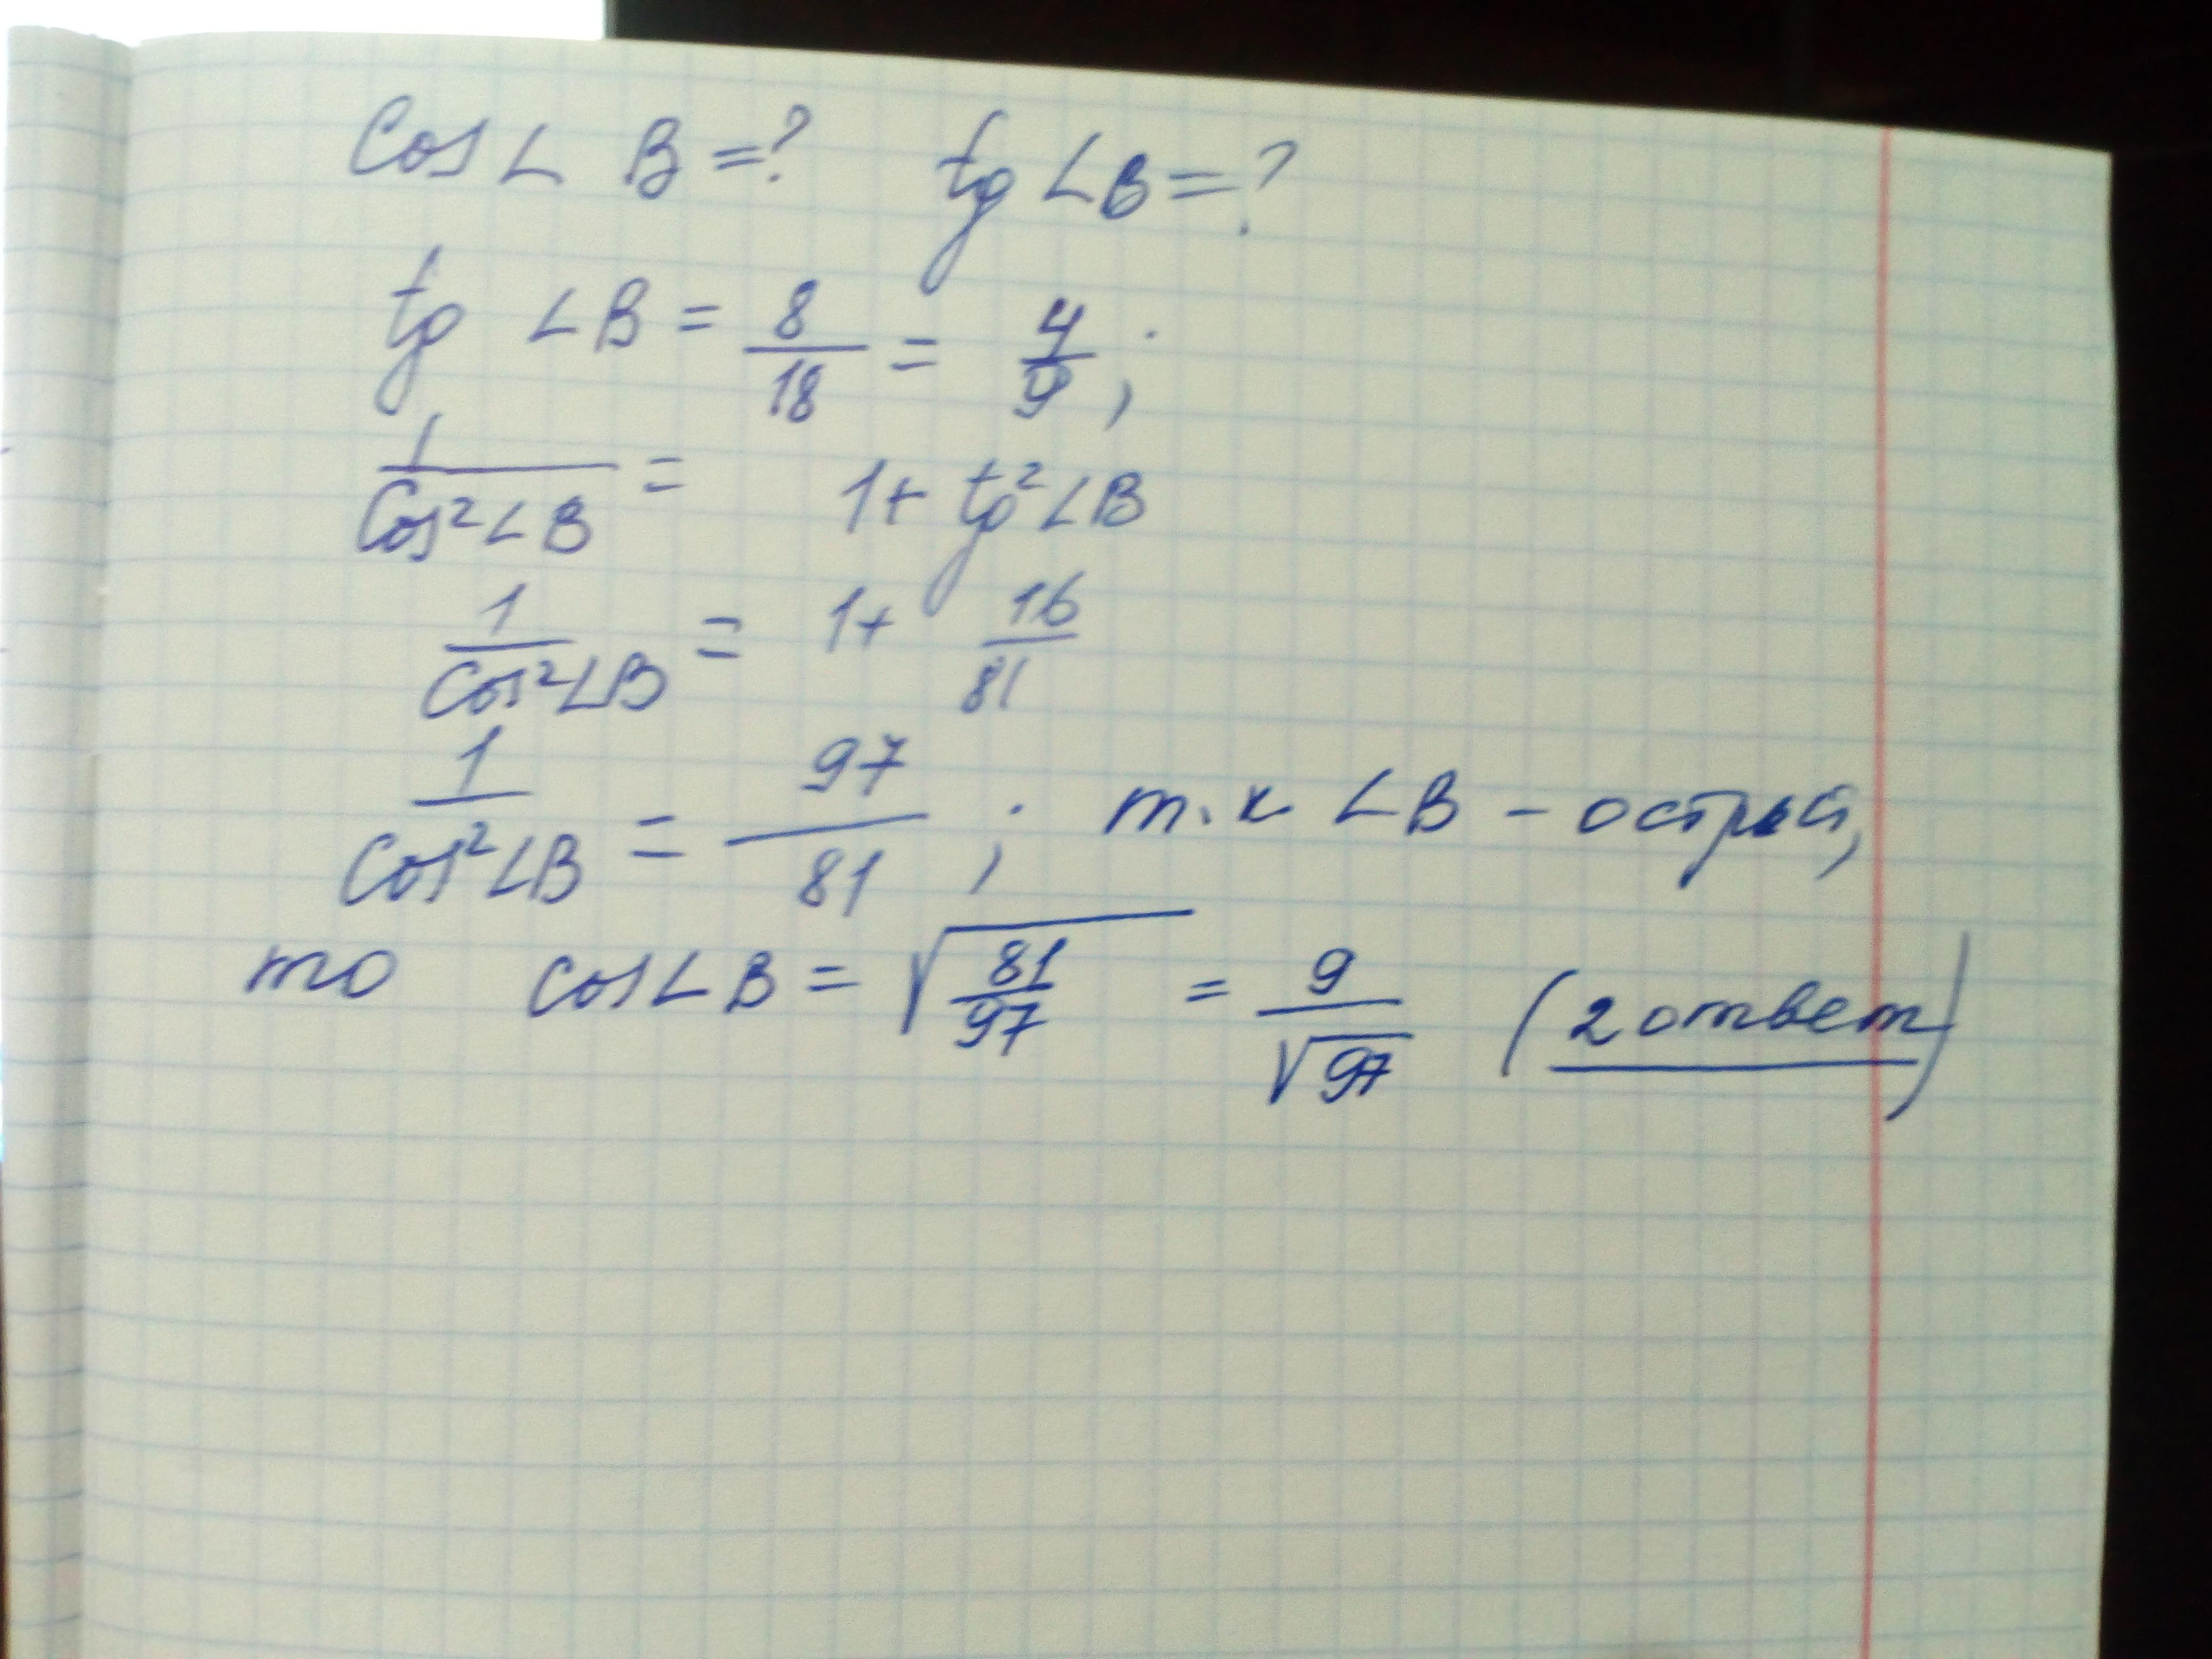 Cos ∠ B = ? tg ∠B = ?
tg ∠B = 8/18 = 4/9 ;
1/Cos²∠B = 1 + tg²∠B
1/Cos²∠B = 1 + 16/81
1/Cos²∠B = 97/81 ; т.к ∠B - острый,
то cos∠B = √(81/97) = 9/√97 (2 ответ)